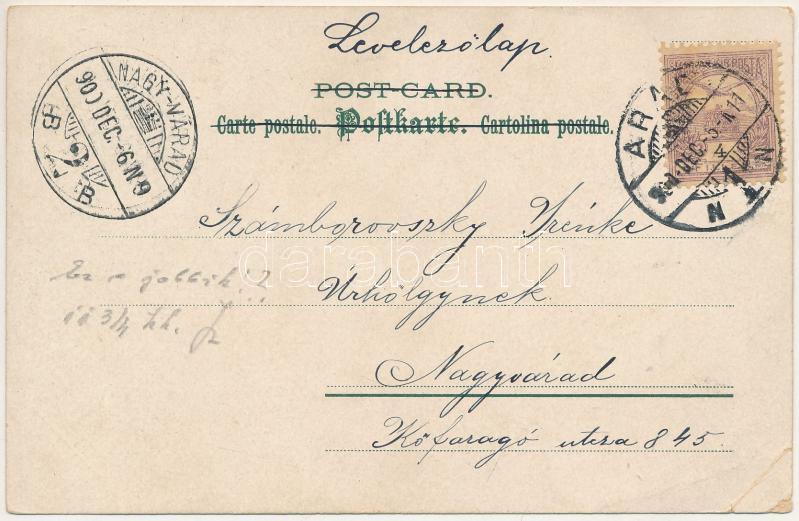 Levelezőlap.
POST-CARD.
Carte postale. Postkarte. Cartolina postale.
NAGY-VÁRAD
900 DEC.-6 N 9
B 2 B
ARAD
DEC.-5
4
N 1 T
Számborovszky Irénke
Úrhölgynek.
Nagyvárad
Kőfaragó utcza 845.
Ez a jobbik!?
darabanth